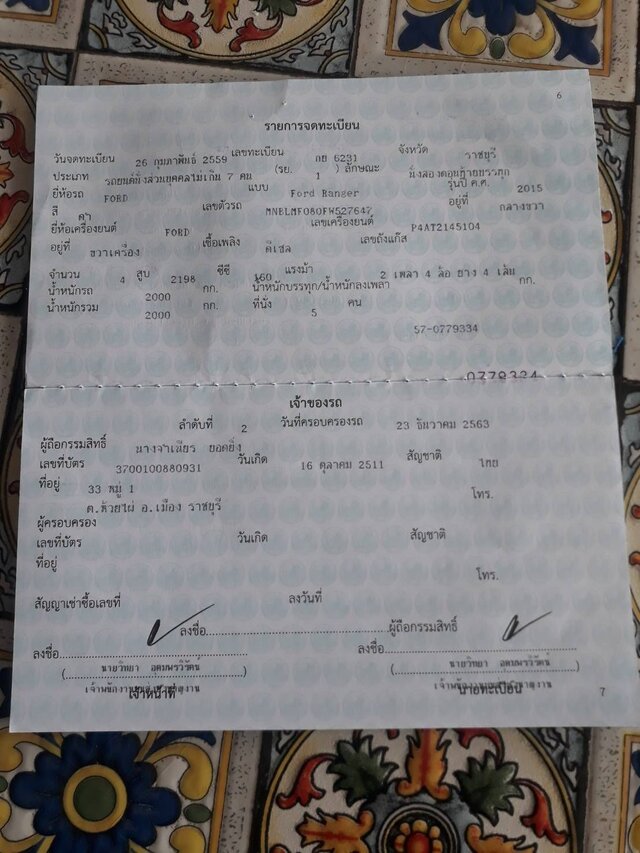 6
รายการจดทะเบียน
วันจดทะเบียน 26 กุมภาพันธ์ 2559 เลขทะเบียน กย 6231 จังหวัด ราชบุรี
ประเภท รถยนต์นั่งส่วนบุคคลไม่เกิน 7 คน (รย. 1 ) ลักษณะ นั่งสองตอนท้ายบรรทุก
ยี่ห้อรถ FORD แบบ Ford Ranger รุ่นปี ค.ศ. 2015
สี ดำ เลขตัวรถ MNBLMFO80FW527647 อยู่ที่ กลางขวา
ยี่ห้อเครื่องยนต์ FORD เลขเครื่องยนต์ P4AT2145104
อยู่ที่ ขวาเครื่อง เชื้อเพลิง ดีเซล เลขถังแก๊ส
จำนวน 4 สูบ 2198 ซีซี 160 แรงม้า 2 เพลา 4 ล้อ ยาง 4 เส้น
น้ำหนักรถ 2000 กก. น้ำหนักบรรทุก/น้ำหนักลงเพลา กก.
น้ำหนักรวม 2000 กก. ที่นั่ง 5 คน
57-0779334
0779334
เจ้าของรถ
ลำดับที่ 2 วันที่ครอบครองรถ 23 ธันวาคม 2563
ผู้ถือกรรมสิทธิ์ นางจำเนียร ยอดยิ่ง
เลขที่บัตร 3700100880931 วันเกิด 16 ตุลาคม 2511 สัญชาติ ไทย
ที่อยู่ 33 หมู่ 1 โทร.
ต.ห้วยไผ่ อ.เมือง ราชบุรี
ผู้ครอบครอง
เลขที่บัตร วันเกิด สัญชาติ
ที่อยู่ โทร.
สัญญาเช่าซื้อเลขที่ ลงวันที่
ลงชื่อ ผู้ถือกรรมสิทธิ์
ลงชื่อ ลงชื่อ
(นายวิทยา) (นายวิทยา)
เจ้าหน้าที่ นายทะเบียน
7